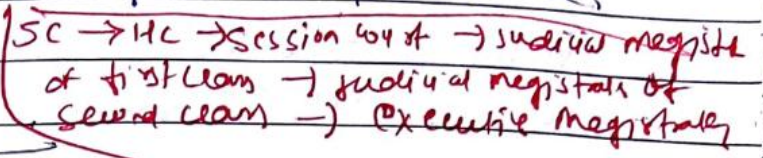 SC → HC → Session court → Judicial magistr
of first class → Judicial magistrate of
second class → Executive magistrates